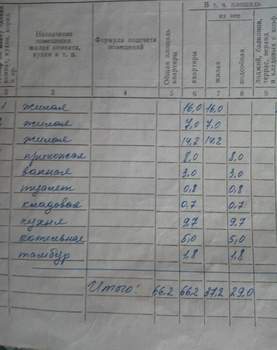 В т. ч. площадь
из нее
Назначение помещения: жилая комната, кухня и т. п.
Формула подсчета помещений
Общая площадь квартиры
квартиры
жилая
подсобная
3 4 5 6 7 8
жилая 16,0 16,0
жилая 7,0 7,0
жилая 14,2 14,2
прихожая 8,0 8,0
ванная 3,0 3,0
туалет 0,8 0,8
кладовая 0,7 0,7
кухня 9,7 9,7
5,0 5,0
тамбур 1,8 1,8
Итого: 66,2 66,2 37,2 29,0